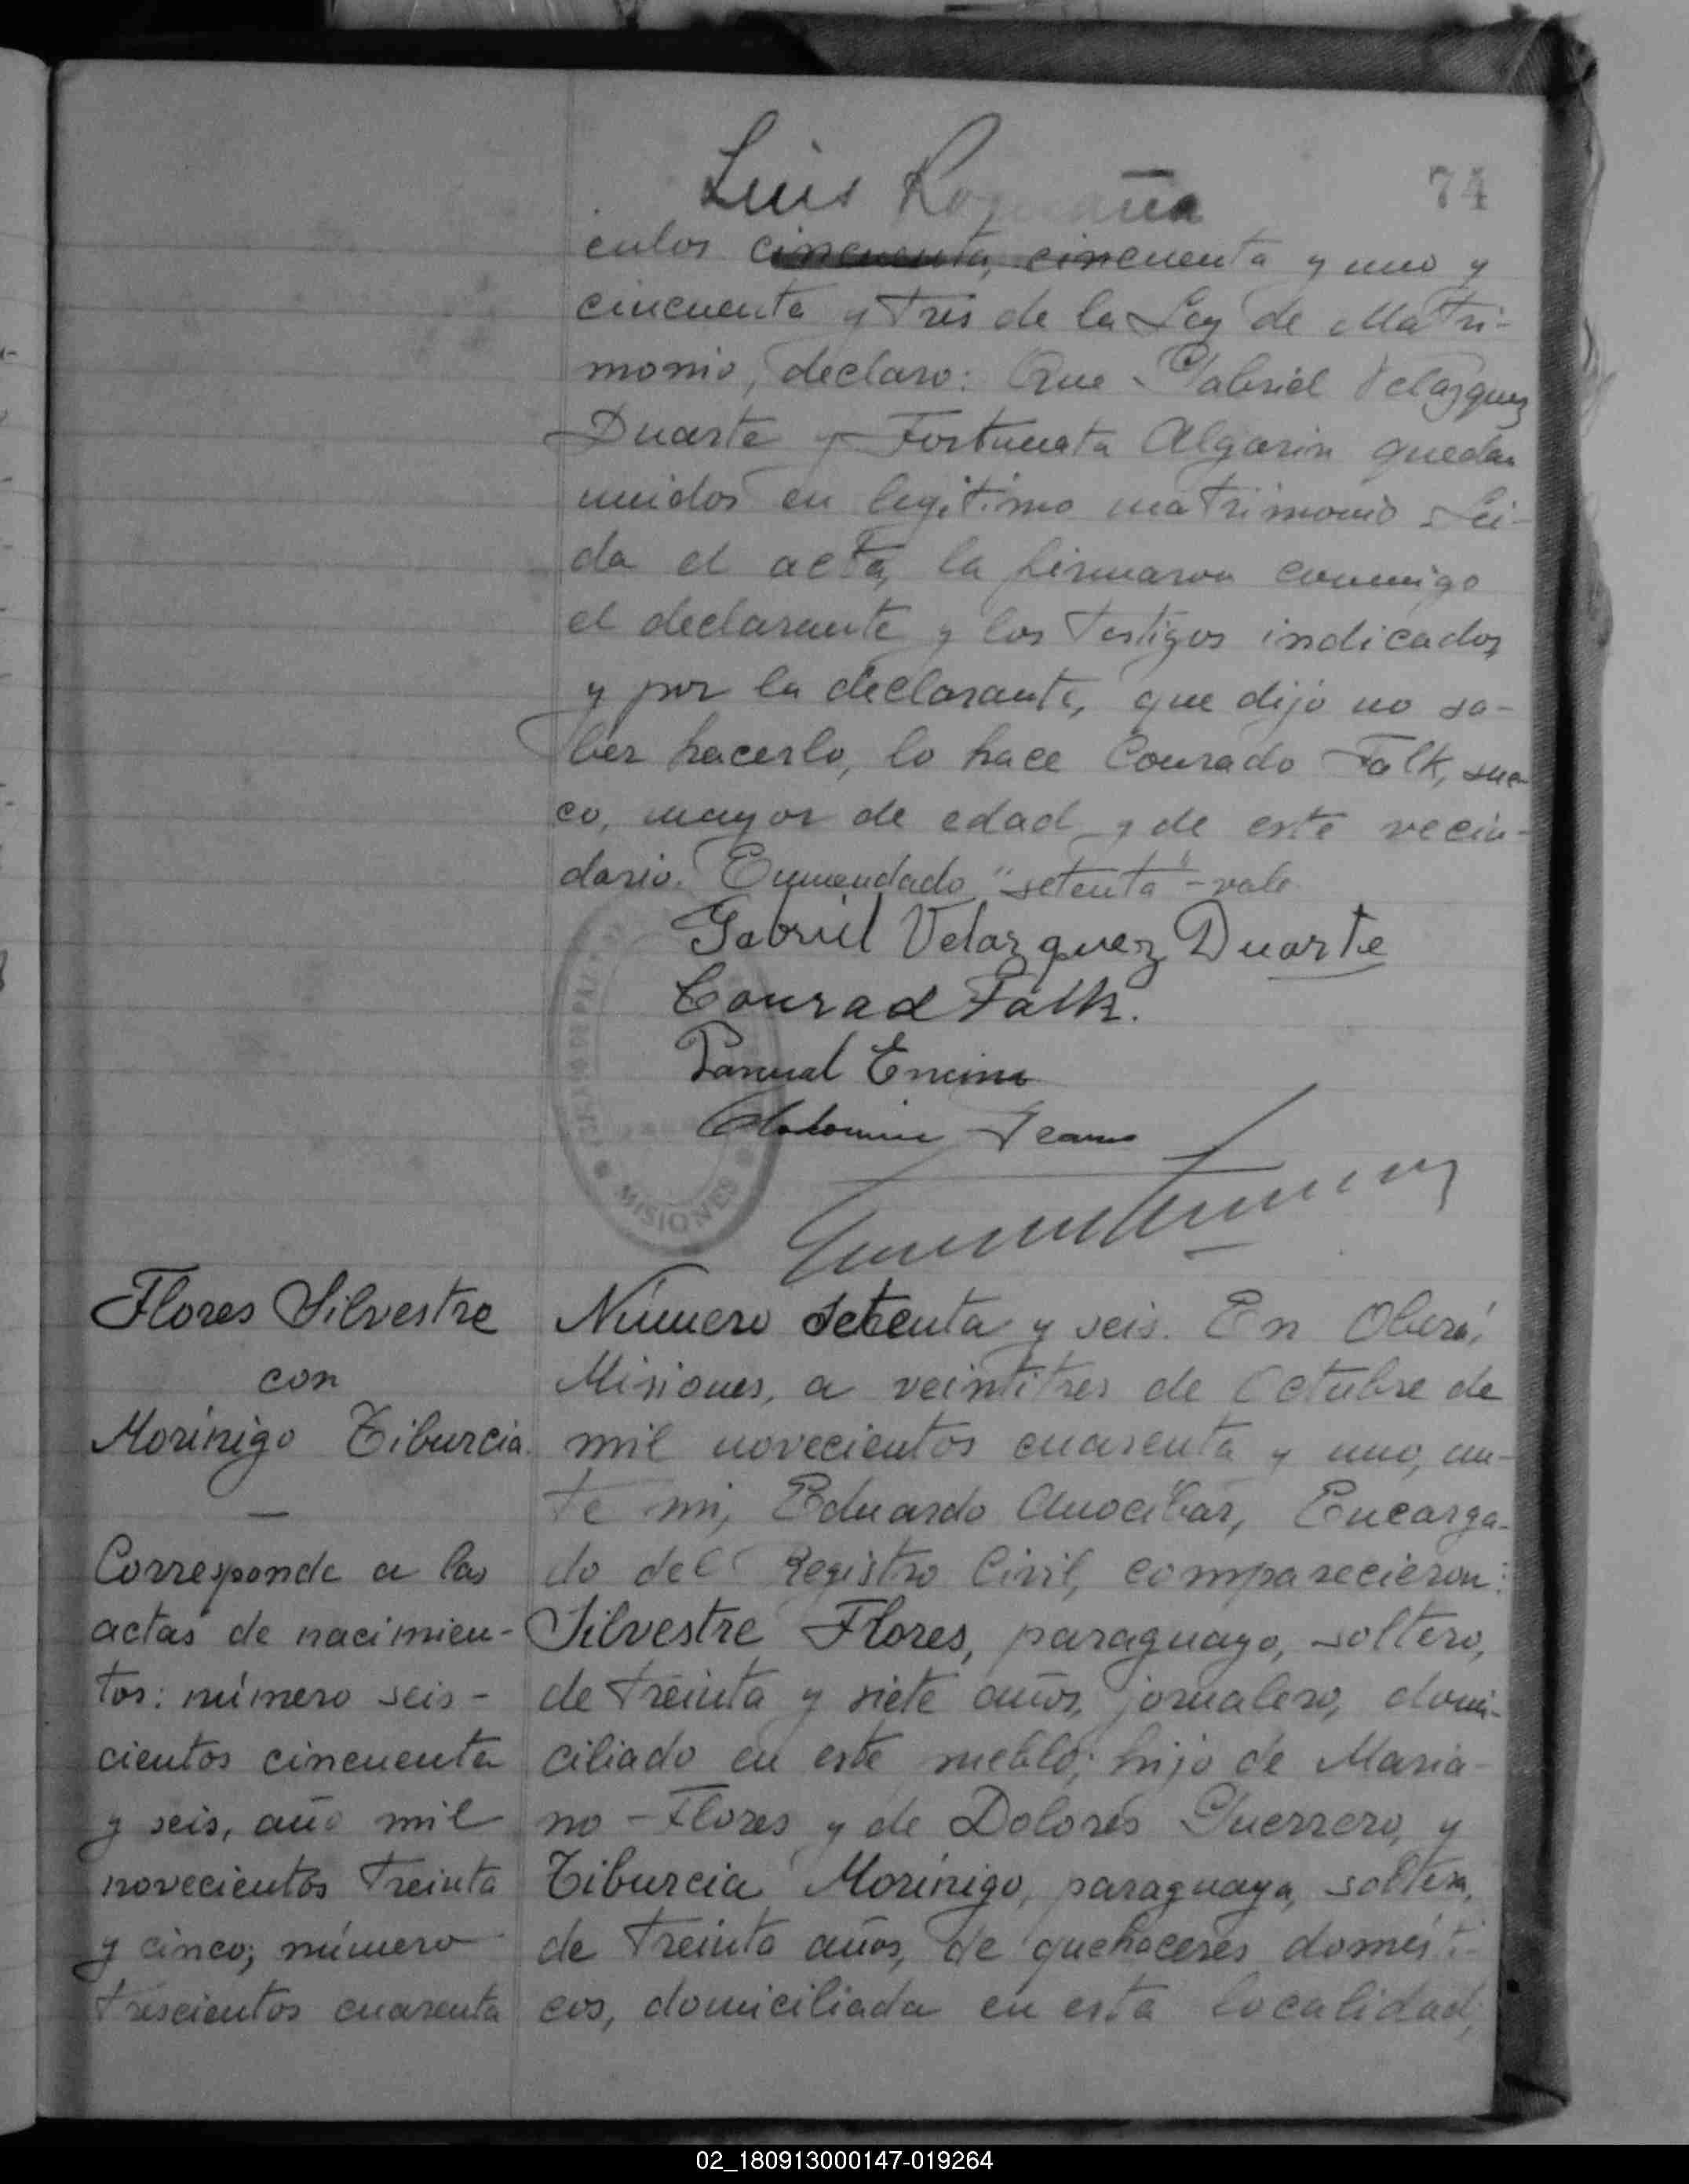 Luis
74
culos cincuenta, cincuenta y uno y
cincuenta y tres de la Ley de Matri-
monio, declaro: Que Gabriel Velázquez
Duarte y Fortunata Algarin quedan
unidos en legítimo matrimonio. Leí-
da el acta, la firmaron conmigo
el declarante y los testigos indicados,
y por la declarante, que dijo no sa-
ber hacerlo, lo hace Conrado Falk, sue-
co, mayor de edad y de este vecin-
dario. Enmendado "setenta" - vale
Gabriel Velazquez Duarte
Conrad Falk.
MISIONES
Flores Silvestre
con
Morínigo Tiburcia.
—
Corresponde a las
actas de nacimien-
tos: número seis-
cientos cincuenta
y seis, año mil
novecientos treinta
y cinco; número
trescientos cuarenta
Número setenta y seis. En Oberá,
Misiones, a veintitres de Octubre de
mil novecientos cuarenta y uno, an-
te mi, Eduardo Anocíbar, Encarga-
do del Registro Civil, comparecieron:
Silvestre Flores, paraguayo, soltero,
de treinta y siete años, jornalero, domi-
ciliado en este pueblo; hijo de Maria-
no Flores y de Dolores Guerrero, y
Tiburcia Morínigo, paraguaya, soltera,
de treinta años, de quehaceres domésti-
cos, domiciliada en esta localidad;
02_180913000147-019264